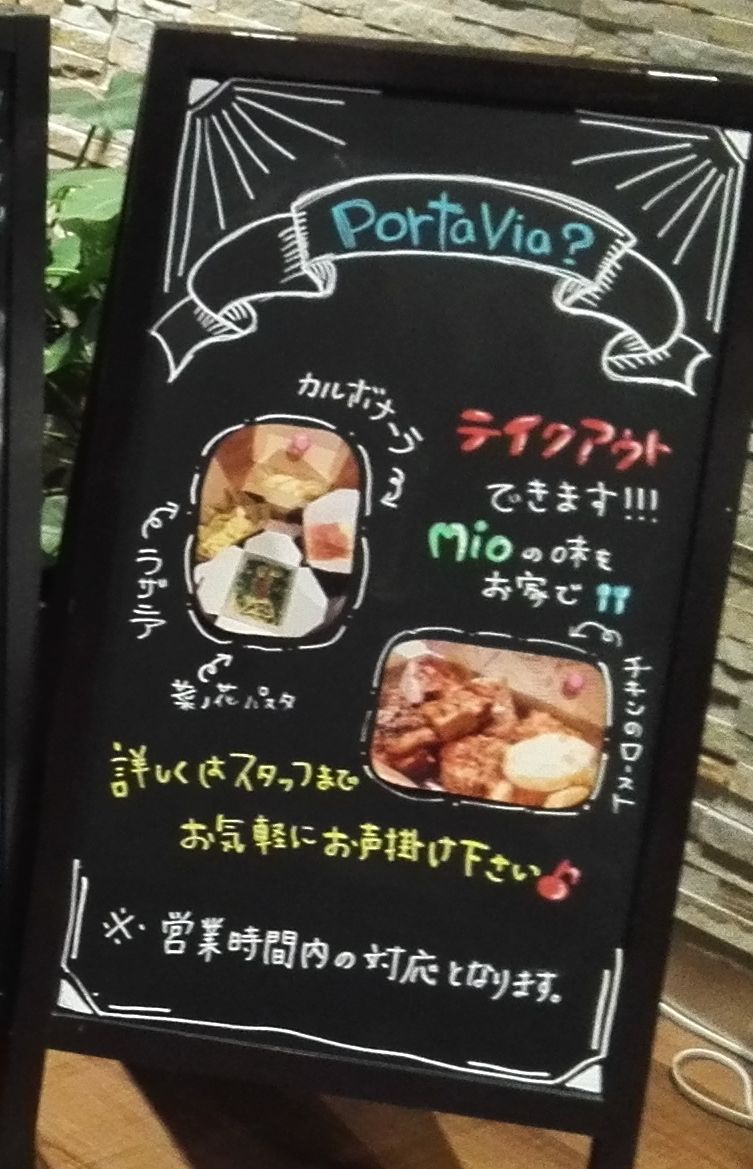 PortaVia?
カルボナーラ
テイクアウト
できます!!!
Mioの味を
お家で
ラザニア
菜ノ花パスタ
チキンのロースト
詳しくはスタッフまで
お気軽にお声掛け下さい♪
※・営業時間内の対応となります。